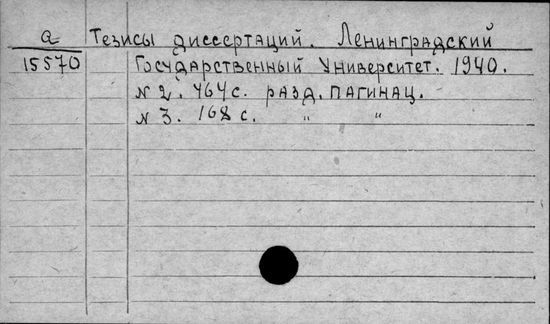 а Тезисы диссертаций. Ленинградский
15570 Государственный Университет. 1940.
N 2. 464 с. разд. пагинац.
N 3. 168 с. " "